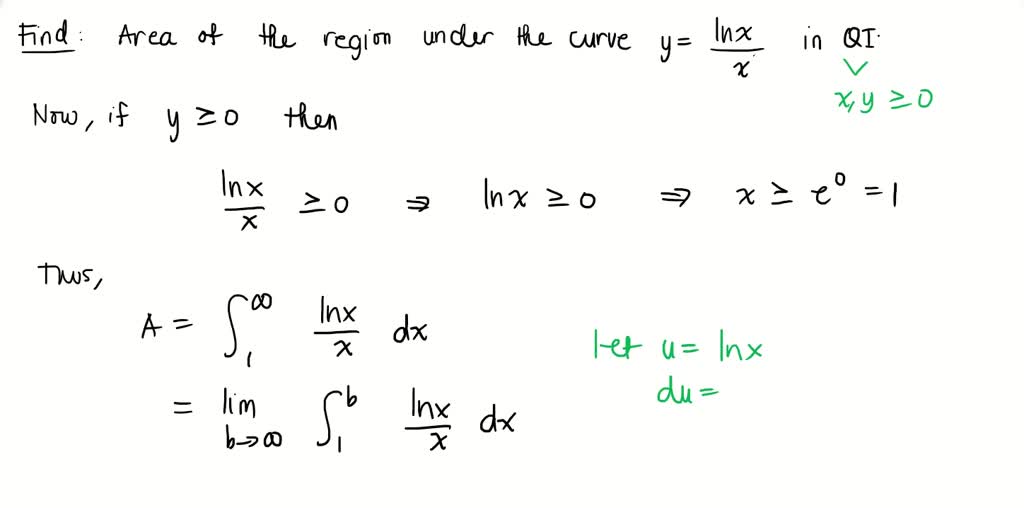 Find: Area of the region under the curve y = lnx/x in QI.
x, y ≥ 0
Now, if y ≥ 0 then
lnx/x ≥ 0 ⇒ lnx ≥ 0 ⇒ x ≥ e⁰ = 1
Thus,
A = ∫₁^∞ lnx/x dx
let u = lnx
du =
= lim b→∞ ∫₁^b lnx/x dx